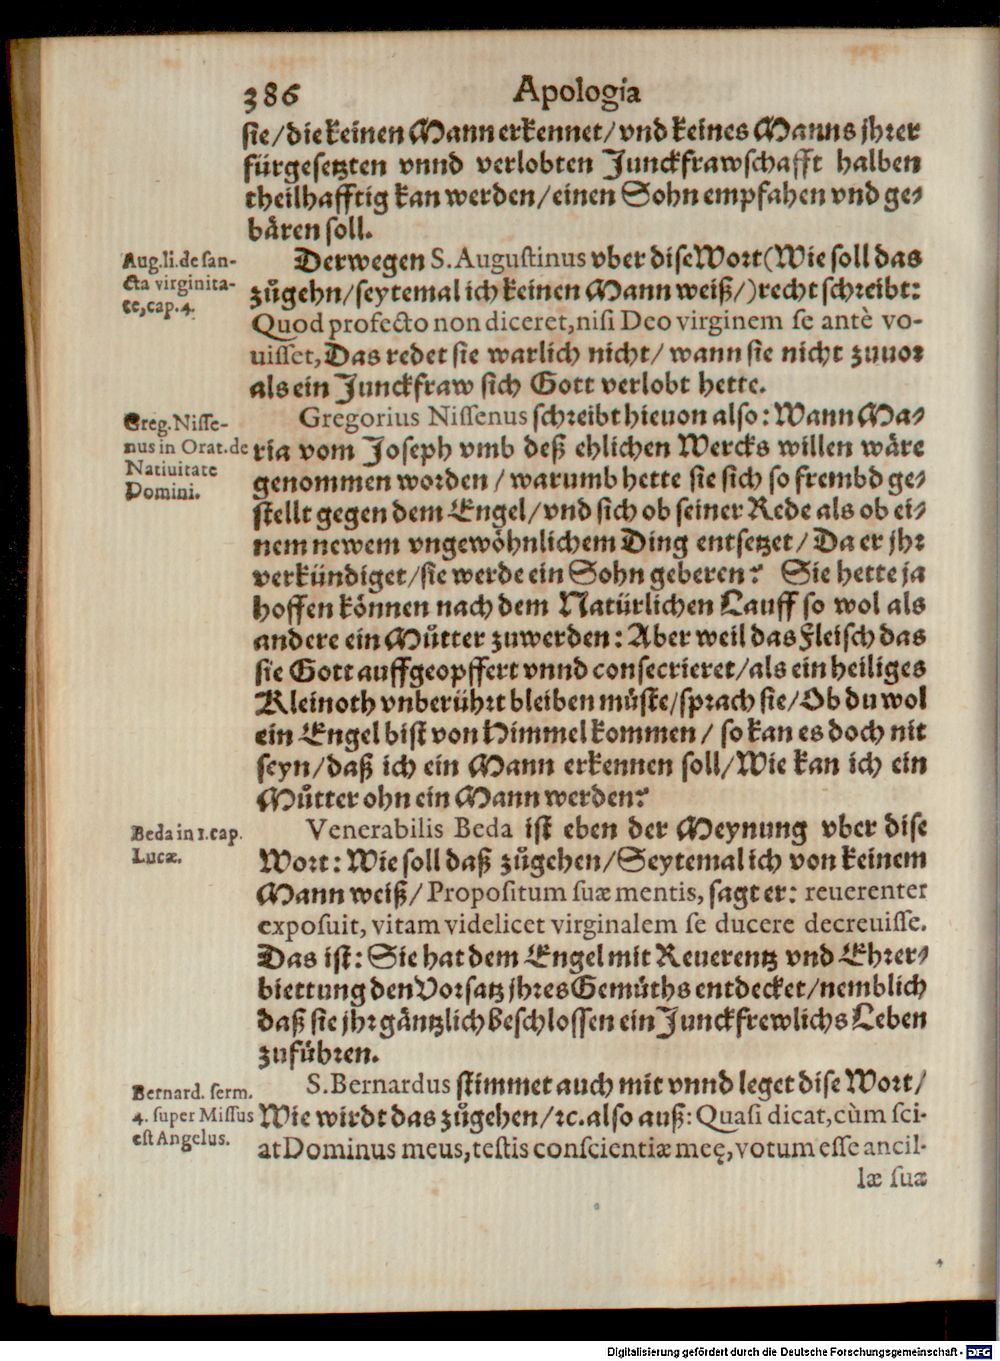 386 Apologia
sie/die keinen Mann erkennet/vnd keines Manns jhrer
fürgesetzten vnnd verlobten Junckfrawschafft halben
theilhafftig kan werden/einen Sohn empfahen vnd ge-
bären soll.
Aug. li. de san-
cta virginita-
te, cap. 4.
Derwegen S. Augustinus vber dise Wort (Wie soll das
zůgehn/seytemal ich keinen Mann weiß/) recht schreibt:
Quod profecto non diceret, nisi Deo virginem se antè vo-
uisset, Das redet sie warlich nicht/wann sie nicht zuuor
als ein Junckfraw sich Gott verlobt hette.
Greg. Nisse-
nus in Orat. de
Natiuitate
Domini.
Gregorius Nissenus schreibt hieuon also: Wann Ma-
ria vom Joseph vmb deß ehlichen Wercks willen wäre
genommen worden/warumb hette sie sich so frembd ge-
stellt gegen dem Engel/vnd sich ob seiner Rede als ob ei-
nem newem vngewöhnlichem Ding entsetzet/Da er jhr
verkündiget/sie werde ein Sohn geberen? Sie hette ja
hoffen können nach dem Natürlichen Lauff so wol als
andere ein Můtter zuwerden: Aber weil das Fleisch das
sie Gott auffgeopffert vnnd consecrieret/als ein heiliges
Kleinoth vnberührt bleiben müste/sprach sie/Ob du wol
ein Engel bist von Himmel kommen/so kan es doch nit
seyn/daß ich ein Mann erkennen soll/Wie kan ich ein
Můtter ohn ein Mann werden?
Beda in 1. cap.
Lucæ.
Venerabilis Beda ist eben der Meynung vber dise
Wort: Wie soll daß zůgehen/Seytemal ich von keinem
Mann weiß/Propositum suæ mentis, sagt er: reuerenter
exposuit, vitam videlicet virginalem se ducere decreuisse.
Das ist: Sie hat dem Engel mit Reuerentz vnd Ehrer-
biettung den Vorsatz jhres Gemůths entdecket/nemblich
daß sie jhr gäntzlich beschlossen ein Junckfrewlichs Leben
zuführen.
Bernard. serm.
4. super Missus
est Angelus.
S. Bernardus stimmet auch mit vnnd leget dise Wort/
Wie wirdt das zůgehen/ꝛc. also auß: Quasi dicat, cùm sci-
at Dominus meus, testis conscientiæ meę, votum esse ancil-
læ suæ
Digitalisierung gefördert durch die Deutsche Forschungsgemeinschaft - DFG